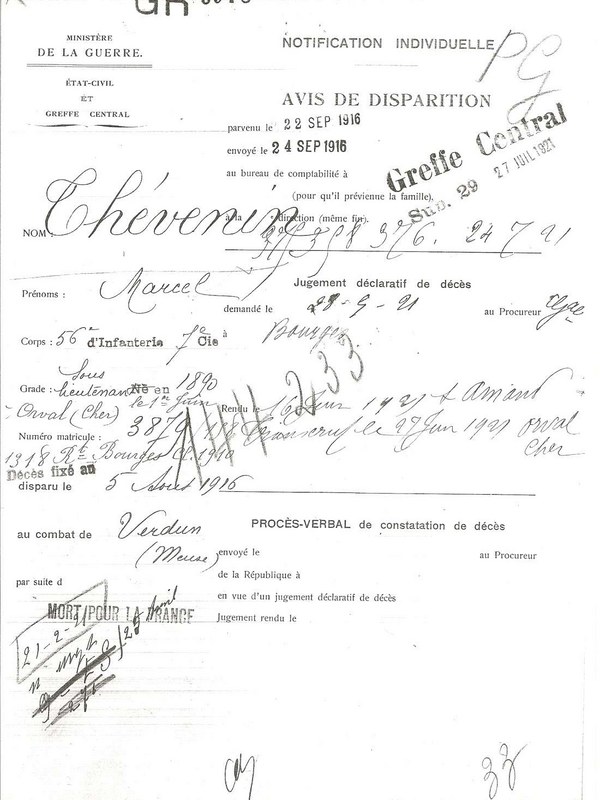 MINISTÈRE
DE LA GUERRE.
ÉTAT-CIVIL
ET
GREFFE CENTRAL
NOTIFICATION INDIVIDUELLE
PG
AVIS DE DISPARITION
parvenu le 22 SEP 1916
envoyé le 24 SEP 1916
Greffe Central
27 JUIL 1921
au bureau de comptabilité à
(pour qu'il prévienne la famille),
à la direction (même fin).
NOM Thévenin
24 7 21
Prénoms : Marcel
Jugement déclaratif de décès
demandé le
au Procureur
à Bourges
Corps : 56e d'Infanterie 7e Cie
Grade : Sous
lieutenant Né en 1890
le 1er Juin
Orval (Cher)
Rendu le 16 Juin 1921 St Amand
Transcrit le 27 Juin 1921 Orval
Cher
Numéro matricule :
1318 Rt Bourges Cl. 1910
Décès fixé au
disparu le 5 Août 1916
au combat de Verdun
(Meuse)
PROCÈS-VERBAL de constatation de décès
envoyé le
au Procureur
de la République à
par suite d
en vue d'un jugement déclaratif de décès
MORT POUR LA FRANCE
Jugement rendu le
33